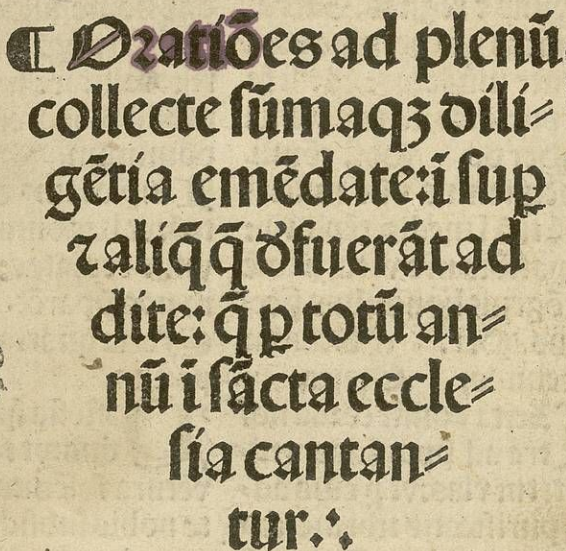 ¶ Oratiões ad plenū
collecte ſūmaqꝫ dili⸗
gētia emēdate: ī ſuꝑ
ꝛ aliq̄ q̄ đfuerāt ad
dite: q̄ ꝑ totū an⸗
nū ī ſācta eccle⸗
ſia cantan⸗
tur.